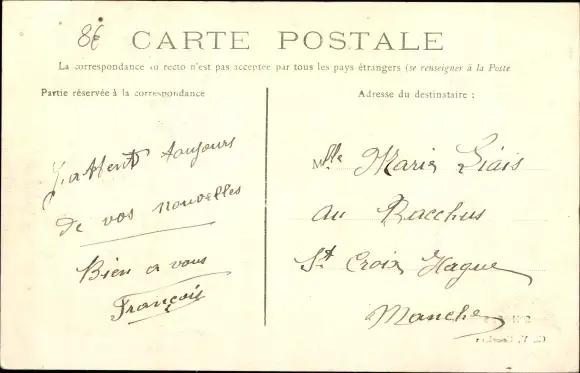 8€
CARTE POSTALE
La correspondance au recto n'est pas acceptée par tous les pays étrangers (se renseigner à la Poste
Partie réservée à la correspondance
Adresse du destinataire :
J'attend toujours
de vos nouvelles
Bien a vous
François
Mlle Marie Liais
au Bacchus
St Croix Hague
Manche